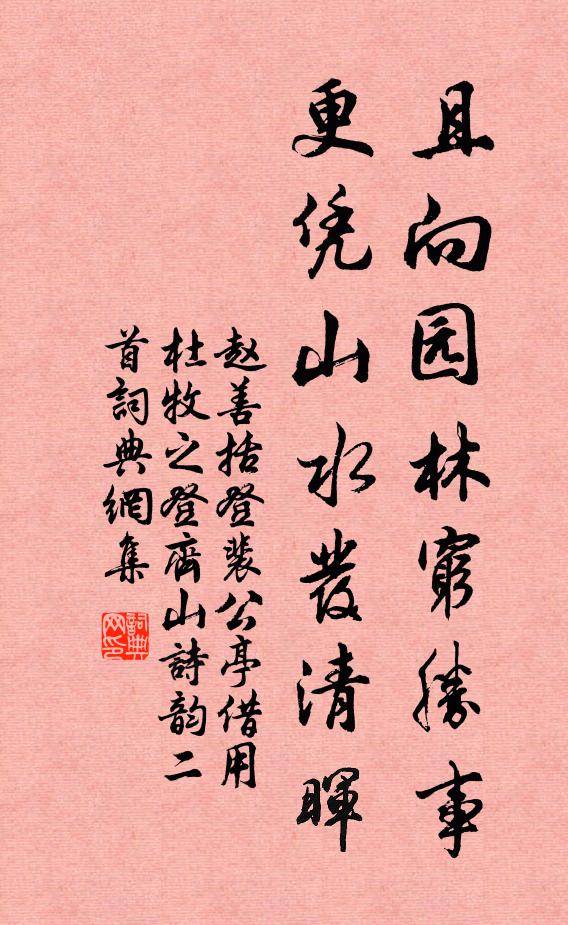 且向园林窮勝事
更凭山水發清暉
赵善括登裴公亭借用
杜牧之登齊山詩韵二
首詞典網集
詞典网印